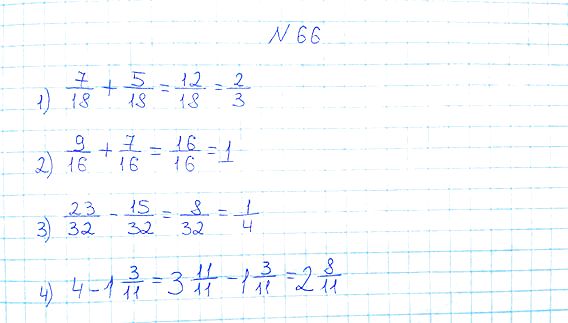 N 66
1) 7/18 + 5/18 = 12/18 = 2/3
2) 9/16 + 7/16 = 16/16 = 1
3) 23/32 - 15/32 = 8/32 = 1/4
4) 4 - 1 3/11 = 3 11/11 - 1 3/11 = 2 8/11